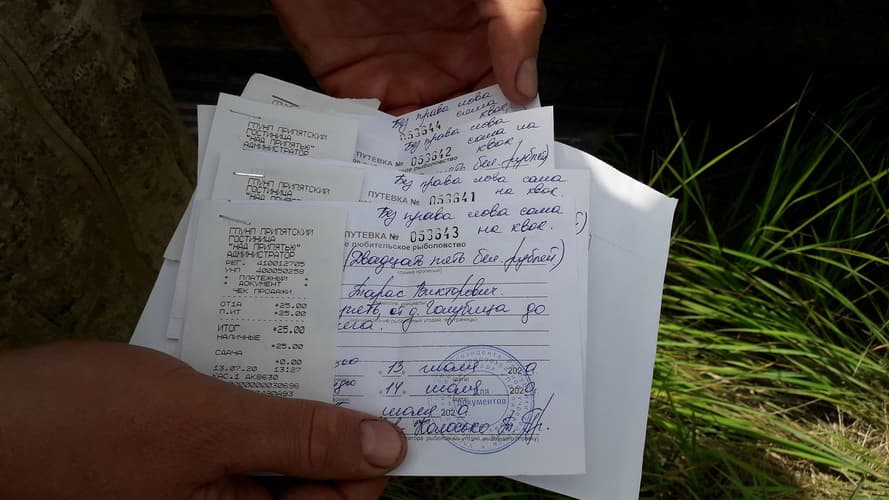 Без права лова
сома на
квок.
053644
Без права лова
сома на
квок
ГПУНП ПРИПЯТСКИЙ
ГОСТИНИЦА
"НАД ПРИПЯТЬЮ"
АДМИНИСТРАТОР
ПУТЕВКА № 053642
ное рыболовство
пять бел. рублей)
Без права лова сома
на квок
ГПУНП ПРИПЯТСКИЙ
ГОСТИНИЦА
ПУТЕВКА № 053641
Без права лова сома
на квок.
ПУТЕВКА № 053643
ое любительское рыболовство
(Двадцать пять бел. рублей)
(сумма прописью)
Тарас Викторович.
от д. Голубица до
13 июля 2020
14 июля 2020
июля 2020
для
документов
Колосько Т. Гр.
ГПУНП ПРИПЯТСКИЙ
ГОСТИНИЦА
"НАД ПРИПЯТЬЮ"
АДМИНИСТРАТОР
РЕГ. 410012705
УНП 400050258
ПЛАТЕЖНЫЙ
ДОКУМЕНТ
ЧЕК ПРОДАЖИ
ОТ1А +25.00
П.ИТ +25.00
ИТОГ +25.00
НАЛИЧНЫЕ
+25.00
СДАЧА
+0.00
13.07.20 13:27
КАС.1 АК8630